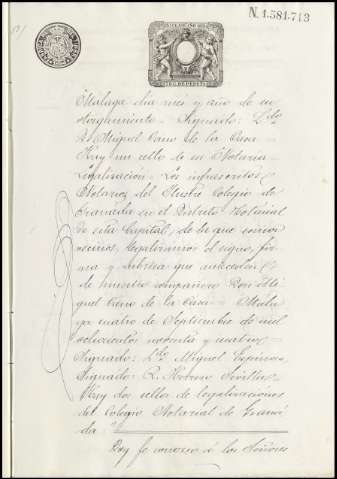 N. 1.581.713
Málaga dia mes y año de su
otorgamiento - Signado: L.do
D. Miguel Cano de la Casa -
Hay un sello de su Notaria -
Legalización - Los infrascritos
Notarios del Ilustre Colegio de
Granada en el Distrito Notarial
de esta Capital, de la que somos
vecinos, legalizamos el signo, fir-
ma y rubrica que anteceden
de nuestro compañero Don Mi-
guel Cano de la Casa - Mála
ga cuatro de Septiembre de mil
ochocientos noventa y cuatro -
Signado: L.do Miguel Espinosa
Signado: Sevilla
Hay dos sellos de legalizaciones
del Colegio Notarial de Grana
da
Doy fe conozco á los Señores